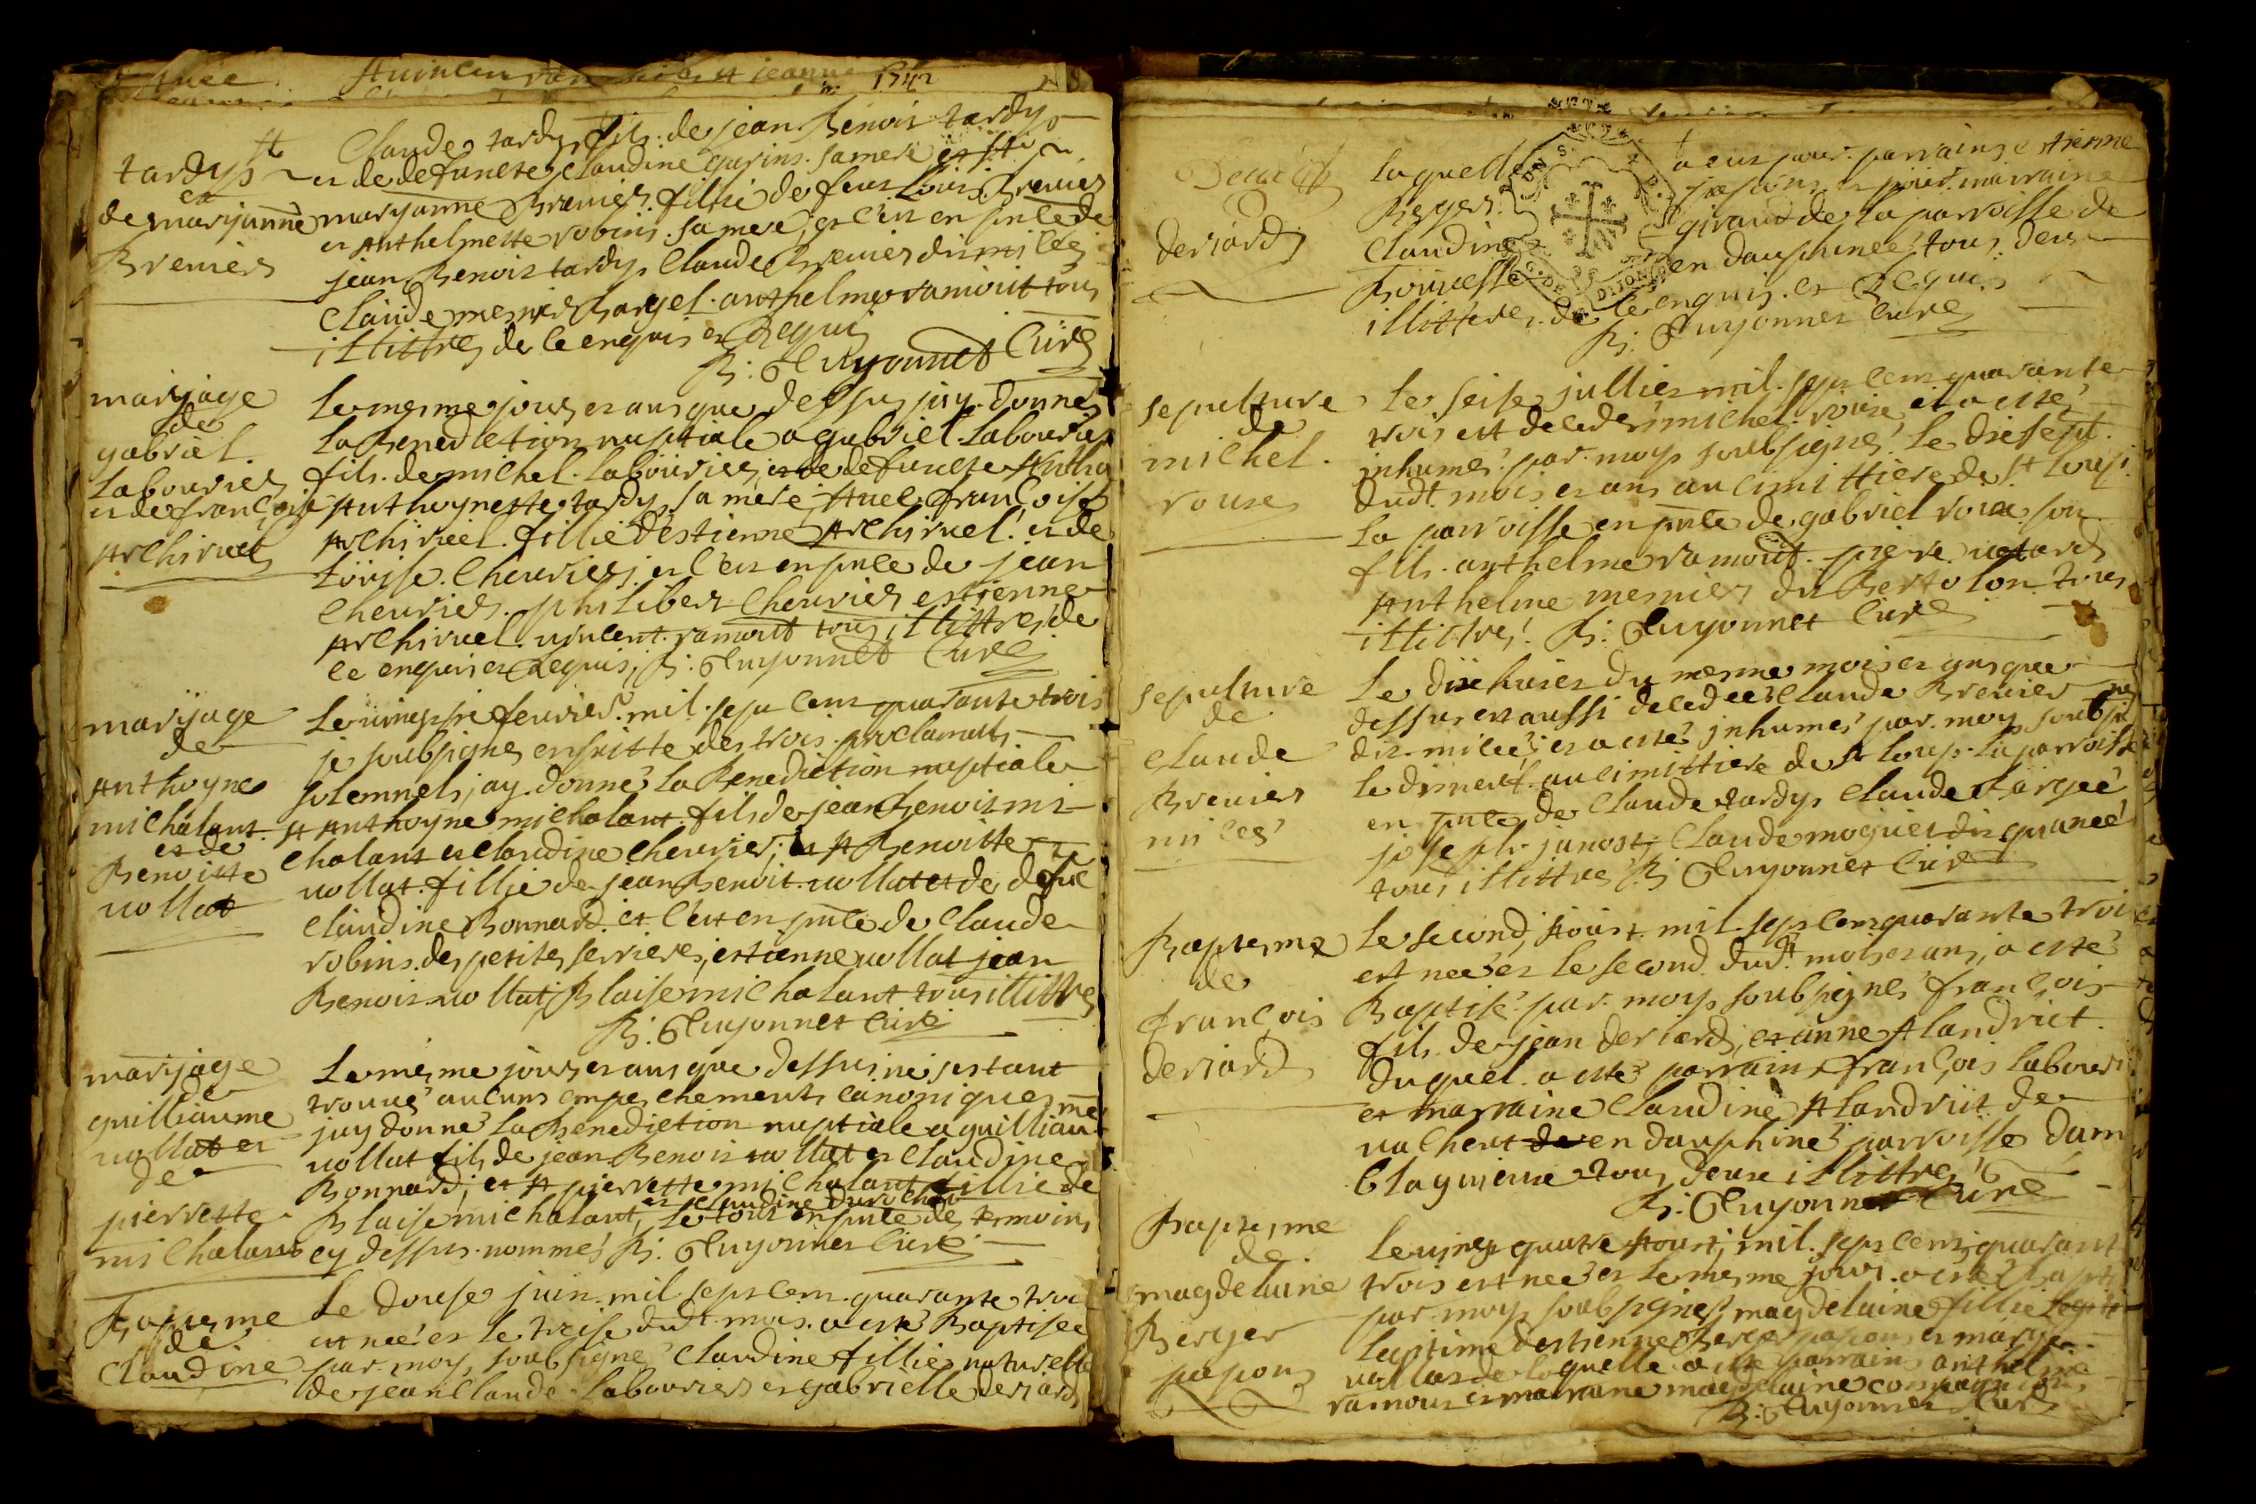 1742
tardy
et
de maryanne
Brevier
Claude tardy fils de jean Benoit tardy
et de defuncte Claudine guerins sa mere et A
maryanne Brevier fillie de feux Louis Brevier
et Anthelmette robins sa mere, et c'est en pnce de
jean Benoit tardy Claude Brevier dit milleé
Claude mesnier Bargel anthelme ramout tous
illittres de ce enquis et Requis
B: Guyonnet Curé
marijage
de
gabriel
Labourier
et de françoise
Archiruel
Le mesme jour et ans que dessus j'ay donné
La Benediction nuptiale a gabriel Labourier
fils de michel Labourier, et de defuncte Antho
Anthoynette tardy sa mere, Avec françoise
Archiruel fillie d'estienne Archiruel et de
Louise Cheurier, et c'est en pnce de jean
Cheurier philibert Cheurier estienne
Archiruel vincent ramout tous illittres de
ce enquis et Requis, B: Guyonnet Curé
marijage
de
Anthoyne
michalant
et de
Benoitte
vollat
Le vingt six fevrier mil sept cent quarante trois
je soubsigne ensuitte des trois proclamats
solemnels, j'ay donné La Benediction nuptiale
A Anthoyne michalant fils de jean Benoit mi
chalant et Claudine Cheurier, et A Benoitte
vollat fillie de jean Benoit vollat et de defue
Claudine Bonnard et c'est en pnce de Claude
robins des petites serrieres, estienne vollat jean
Benoit vollat Blaise michalant tous illittres
B: Guyonnet Curé
marijage
de
guilliaume
vollat et
de
pierrette
michalant
Le mesme jour et ans que dessus ne s'estant
trouvé aucuns empeschements canoniques
j'ay donné La Benediction nuptiale a guilliaume
vollat fils de jean Benoit vollat et Claudine
Bonnard, et A pierrette michalant fillie de
et Claudine
Blaise michalant, Le tout en pnce des temoins
cy dessus nommés B: Guyonnet Curé
Baptesme
de
Claudine
Le douse juin mil sept cent quarante troi
est neé et le treise dudt mois a esté Baptiseé
par moy soubsigne Claudine fillie naturelle
de jean Claude Labourier et gabrielle deriard
deriard
Laquelle a eut pour parrains estienne
Berger papons et pour marraine
Claudine giraud de La parroisse de
Bouvesse en dauphineé tous deux
illitteres de ce enquis et Requis
B: Guyonnet Curé
sepulture
de
michel
roux
Le seise jullier mil sept cent quarante
trois est decedé michel roux, et a esté
inhumé par moy soubsigné Le disept
dudt mois et ans au cimittiere de St Loup
La parroisse en pnce de gabriel roux son
fils anthelme ramout pierre
Anthelme mesnier du Bertolon tous
illittres B: Guyonnet Curé
sepulture
de
Claude
Brevier
mileé
Le dixhuict du mesme mois et ans que
dessus est aussi decedeé Claude Brevier
dit mileé, et a esté inhumé par moy soubsi
Le disneuf au cimittiere de St Loup La parroisse
en pnce de Claude tardy Claude
joseph janost, Claude moguet dit
tous illittres B: Guyonnet Curé
Baptesme
de
françois
deriard
Le second Aoust mil sept cent quarante troi
est neé et le second dudt mois et ans, a esté
Baptisé par moy soubsigné françois
fils de jean deriard, et anne Alandriet
duquel a esté parrain françois Labouri
et marraine Claudine Alandriet de
vachert en dauphiné parroisse dam
blagnieue tous deux illittres
B: Guyonnet Curé
Baptesme
de
magdelaine
Berger
papons
Le vingt quatre Aoust, mil sept cent quarant
trois est neé et le mesme jour a esté Bapti
par moy soubsigné magdelaine fillie
Legitime d'estienne Berger papons et marye
vollat de laquelle a esté parrain anthelme
ramout et marraine magdelaine
B: Guyonnet Curé